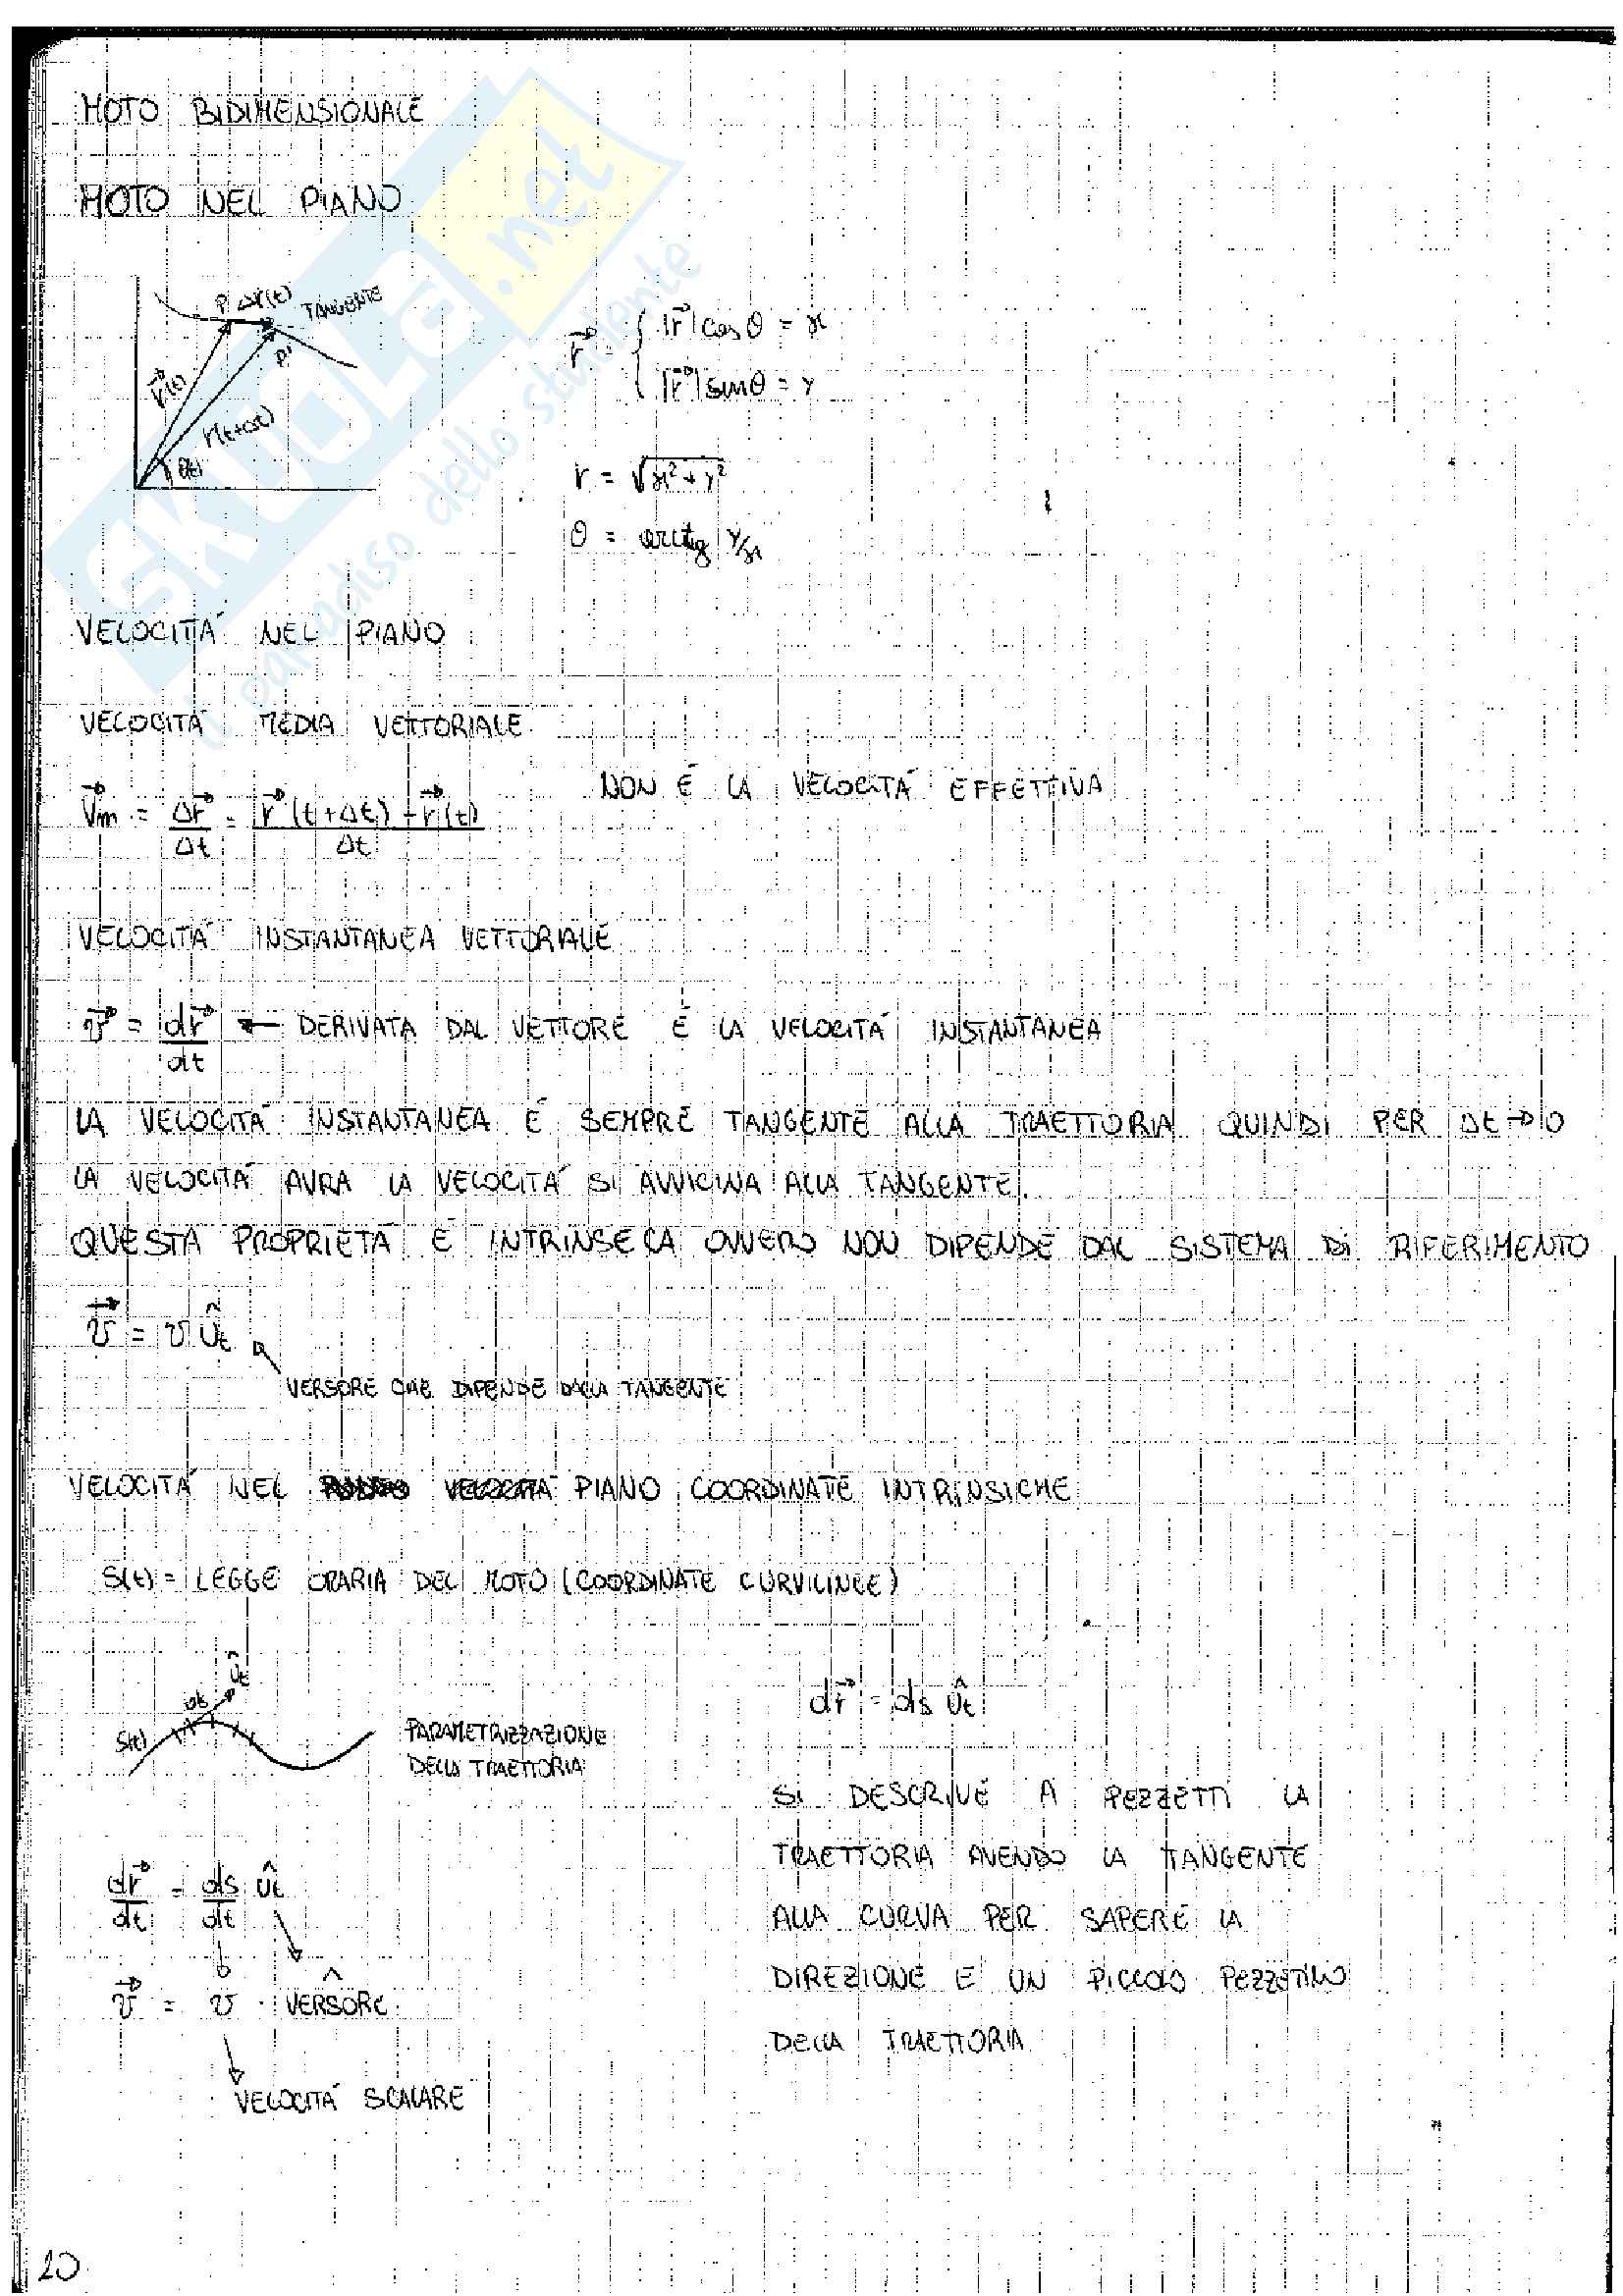 MOTO BIDIMENSIONALE
MOTO NEL PIANO
P Δr(t) TANGENTE
P'
r⃗(t)
r(t+Δt)
θ(t)
r⃗ = { |r⃗| cos θ = x
|r⃗| sin θ = y
r = √x²+y²
θ = arctg y/x
VELOCITÁ NEL PIANO
VELOCITÁ MEDIA VETTORIALE
V⃗m = Δr⃗/Δt = r⃗(t+Δt) + r⃗(t)/Δt
NON É LA VELOCITÁ EFFETTIVA
VELOCITÁ INSTANTANEA VETTORIALE
v⃗ = dr⃗/dt ← DERIVATA DAL VETTORE É LA VELOCITÁ INSTANTANEA
LA VELOCITÁ INSTANTANEA É SEMPRE TANGENTE ALLA TRAETTORIA QUINDI PER Δt→0
LA VELOCITÁ AVRA LA VELOCITÁ SI AVVICINA ALLA TANGENTE.
QUESTA PROPRIETÁ É INTRINSECA OVVERO NON DIPENDE DAL SISTEMA DI RIFERIMENTO
v⃗ = v ût
VERSORE CHE DIPENDE DALLA TANGENTE
VELOCITÁ NEL VELOCITA PIANO COORDINATE INTRINSICHE
S(t) = LEGGE ORARIA DEL MOTO (COORDINATE CURVILINEE)
ût
ds
S(t)
PARAMETRIZZAZIONE
DELLA TRAETTORIA
dr⃗ = ds ût
SI DESCRIVE A PEZZETTI LA
TRAETTORIA AVENDO LA TANGENTE
ALLA CURVA PER SAPERE LA
DIREZIONE E UN PICCOLO PEZZETTINO
DELLA TRAETTORIA
dr⃗/dt = ds/dt ût
v⃗ = v · VERSORE
VELOCITÁ SCALARE
20
SKUOLA.net
il paradiso dello studente